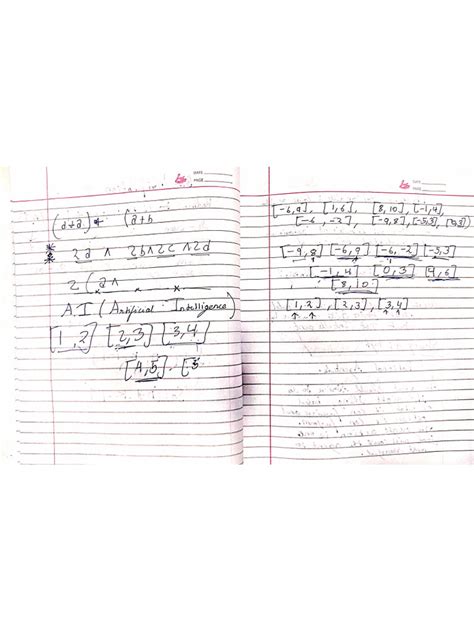 DATE
PAGE
(d+a) (a+b
2a ∧ 2b∧2c ∧2d
2 (a∧
A.I (Artificial Intelligence)
[1, 2] [2, 3] [3, 4]
[4, 5] . [5
DATE
PAGE
[-6, 9], [1, 6], [8, 10], [-1, 4],
[-6, -2], [-9, 8], [-5, 3], [0, 3]
[-9, 8] [-6, 9] [-6, -2] [-5, 3]
[-1, 4] [0, 3] [1, 6]
[8, 10]
[1, 2], [2, 3], [3, 4]